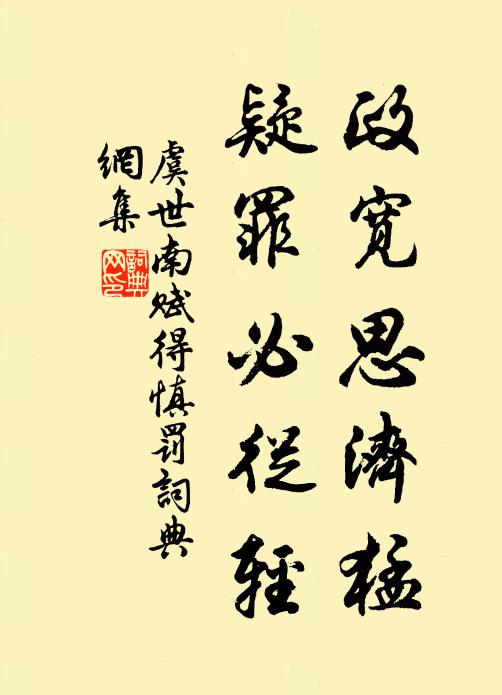 政寬思濟猛
疑罪必從輕
虞世南賦得慎罰詞典
網集
詞典
网印